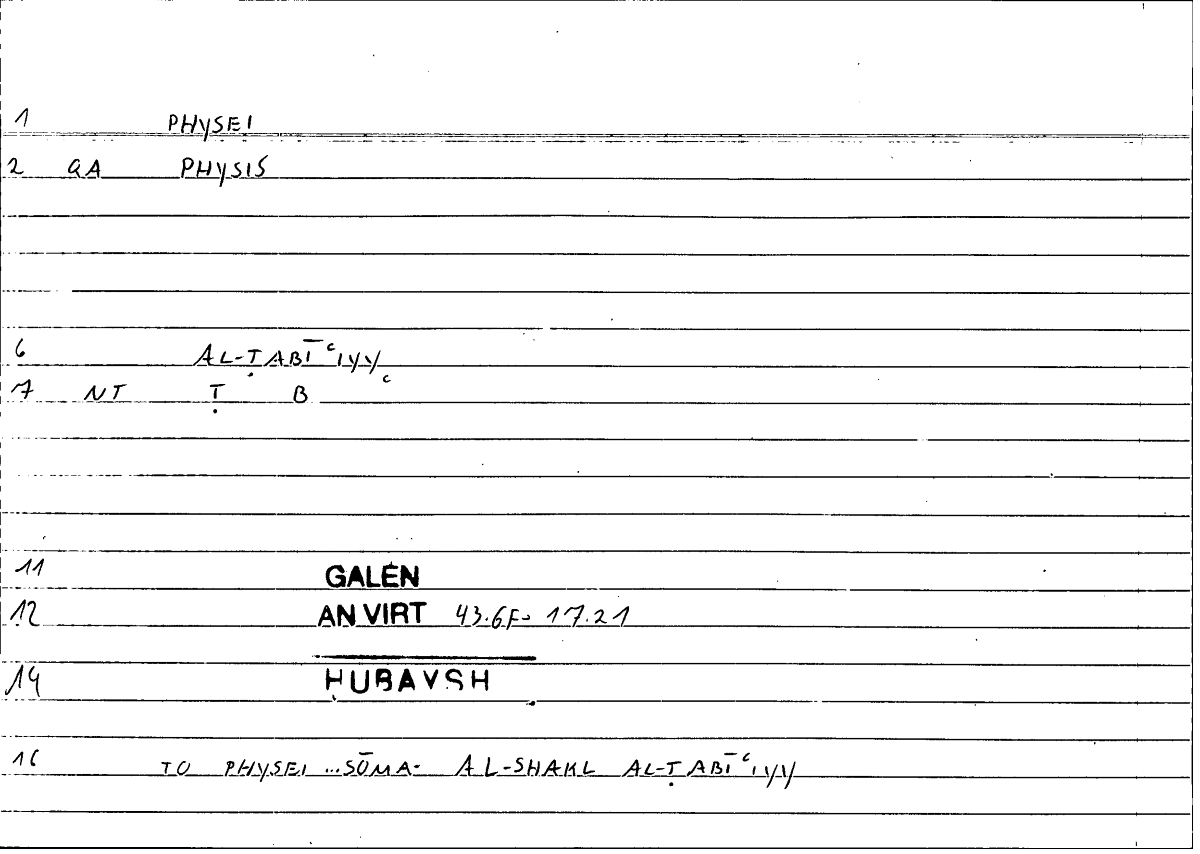 1 PHYSEI
2 QA PHYSIS
6 AL-ṬABĪʿIYY
7 NT Ṭ B ʿ
11 GALEN
12 AN VIRT 43.6F= 17.21
14 ḤUBAYSH
16 TO PHYSEI ... SŌMA= AL-SHAKL AL-ṬABĪʿIYY